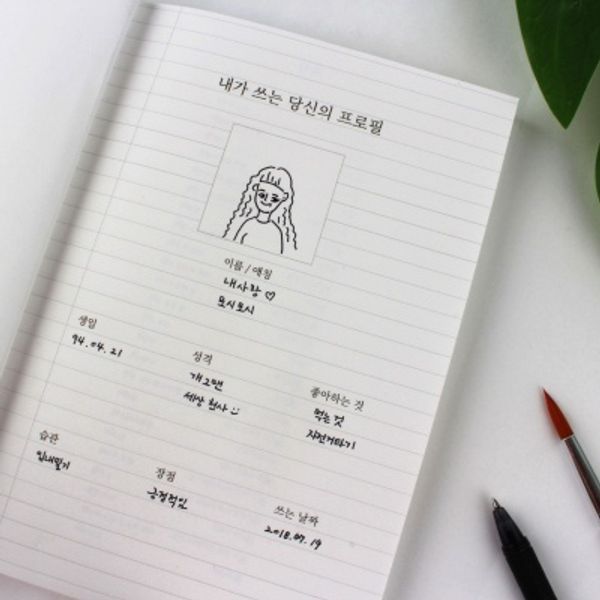 내가 쓰는 당신의 프로필
이름 / 애칭
내사랑 ♡
모시모시
생일
94.04.21
성격
개그맨
세상 천사 :)
좋아하는 것
먹는 것
자전거타기
습관
입내밀기
장점
긍정적임
쓰는 날짜
2018.07.19